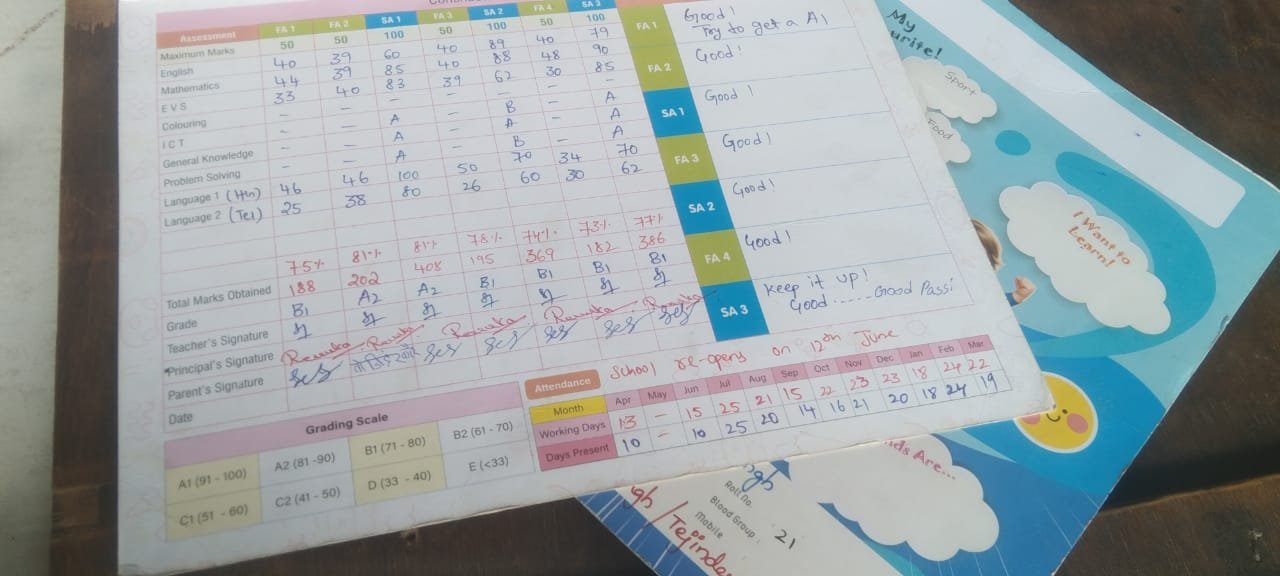 Assessment FA 1 FA 2 SA 1 FA 3 SA 2 FA 4 SA 3
Maximum Marks 50 50 100 50 100 50 100
English 40 39 60 40 89 40 79
Mathematics 44 39 85 40 88 48 90
E V S 33 40 83 39 62 30 85
Colouring - - - - - - -
I C T - - A - B - A
General Knowledge - - A - A - A
Problem Solving - - A - B - A
Language 1 (Hin) 46 46 100 50 70 34 70
Language 2 (Tel) 25 38 80 26 60 30 62
75% 81% 81% 78% 74% 73% 77%
Total Marks Obtained 188 202 408 195 369 182 386
Grade B1 A2 A2 B1 B1 B1 B1
Teacher's Signature
Principal's Signature
Parent's Signature
Date
FA 1 Good!
Try to get a A1
FA 2 Good!
SA 1 Good!
FA 3 Good!
SA 2 Good!
FA 4 Good!
SA 3 Keep it up!
Good ..... Good Pass!
School re-opens on 12th June
Grading Scale
A1 (91 - 100) A2 (81 -90) B1 (71 - 80) B2 (61 - 70)
C1 (51 - 60) C2 (41 - 50) D (33 - 40) E (<33)
Attendance
Month Apr May Jun Jul Aug Sep Oct Nov Dec Jan Feb Mar
Working Days 13 - 15 25 21 15 22 23 23 18 24 22
Days Present 10 - 10 25 20 14 16 21 20 18 24 19
My
Sport
Food
I Want to
Learn!
Roll No.
Blood Group :
Mobile
21